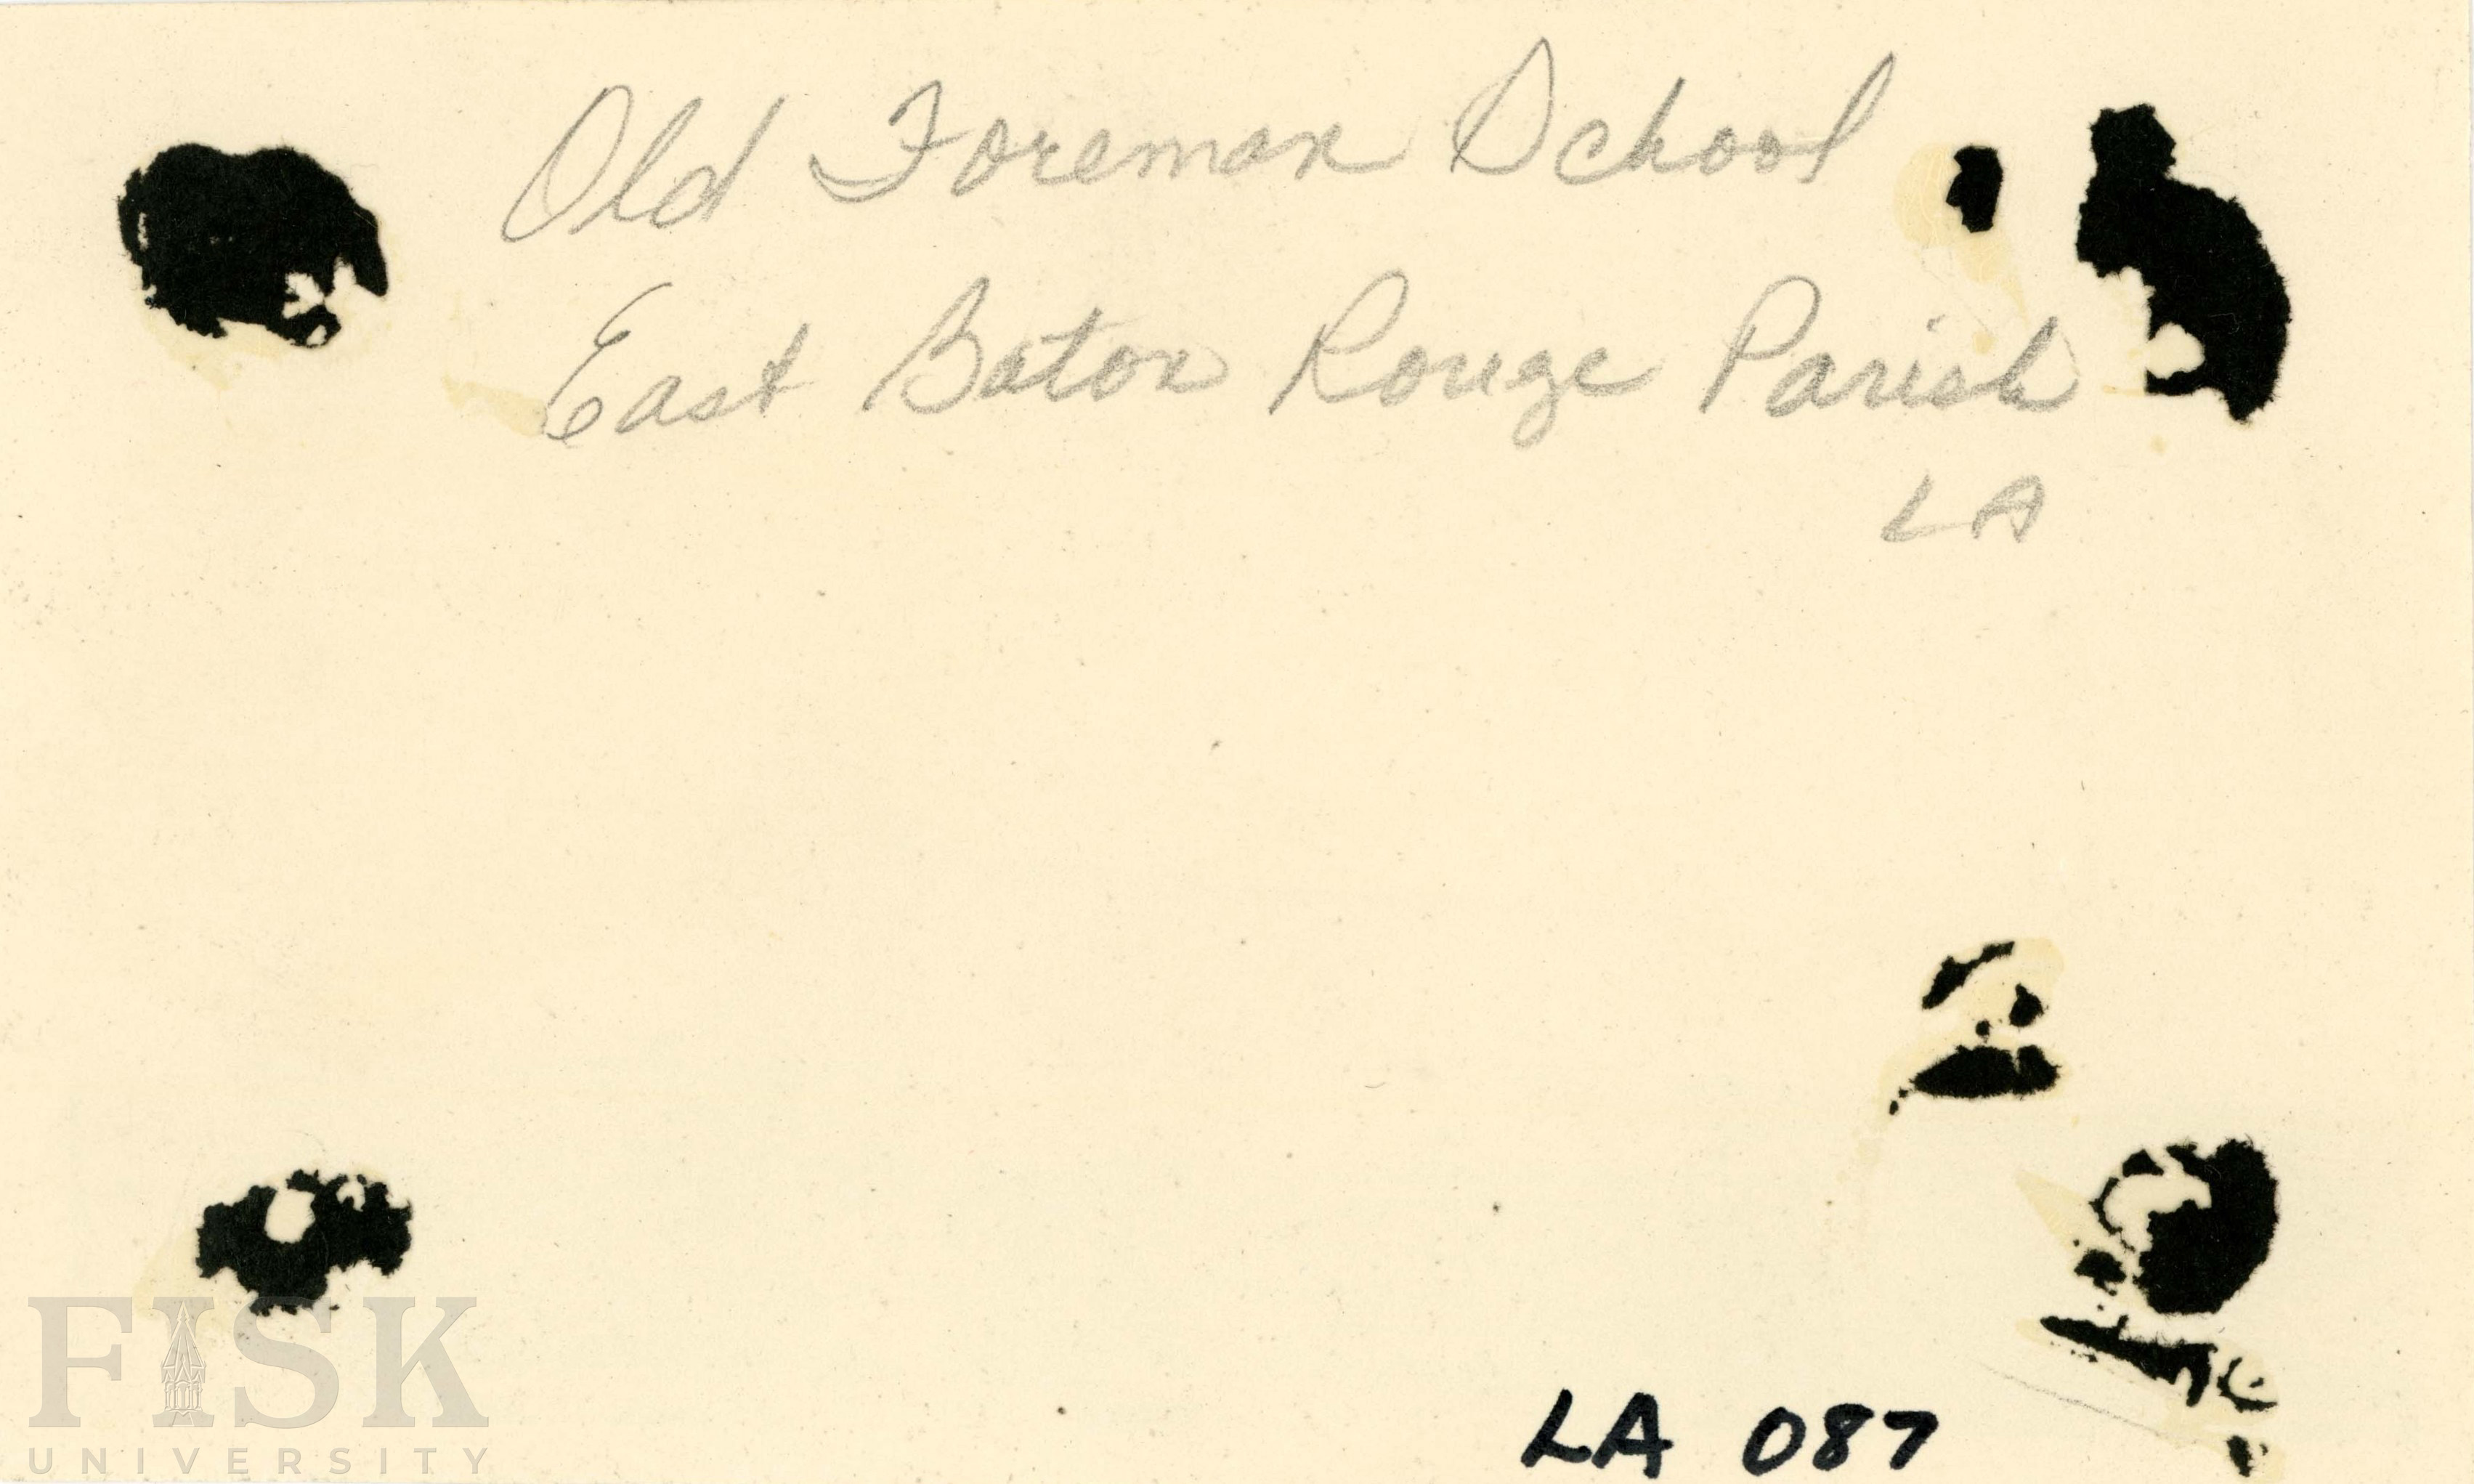 Old Foreman School
East Baton Rouge Parish
LA
LA 087
FISK
UNIVERSITY